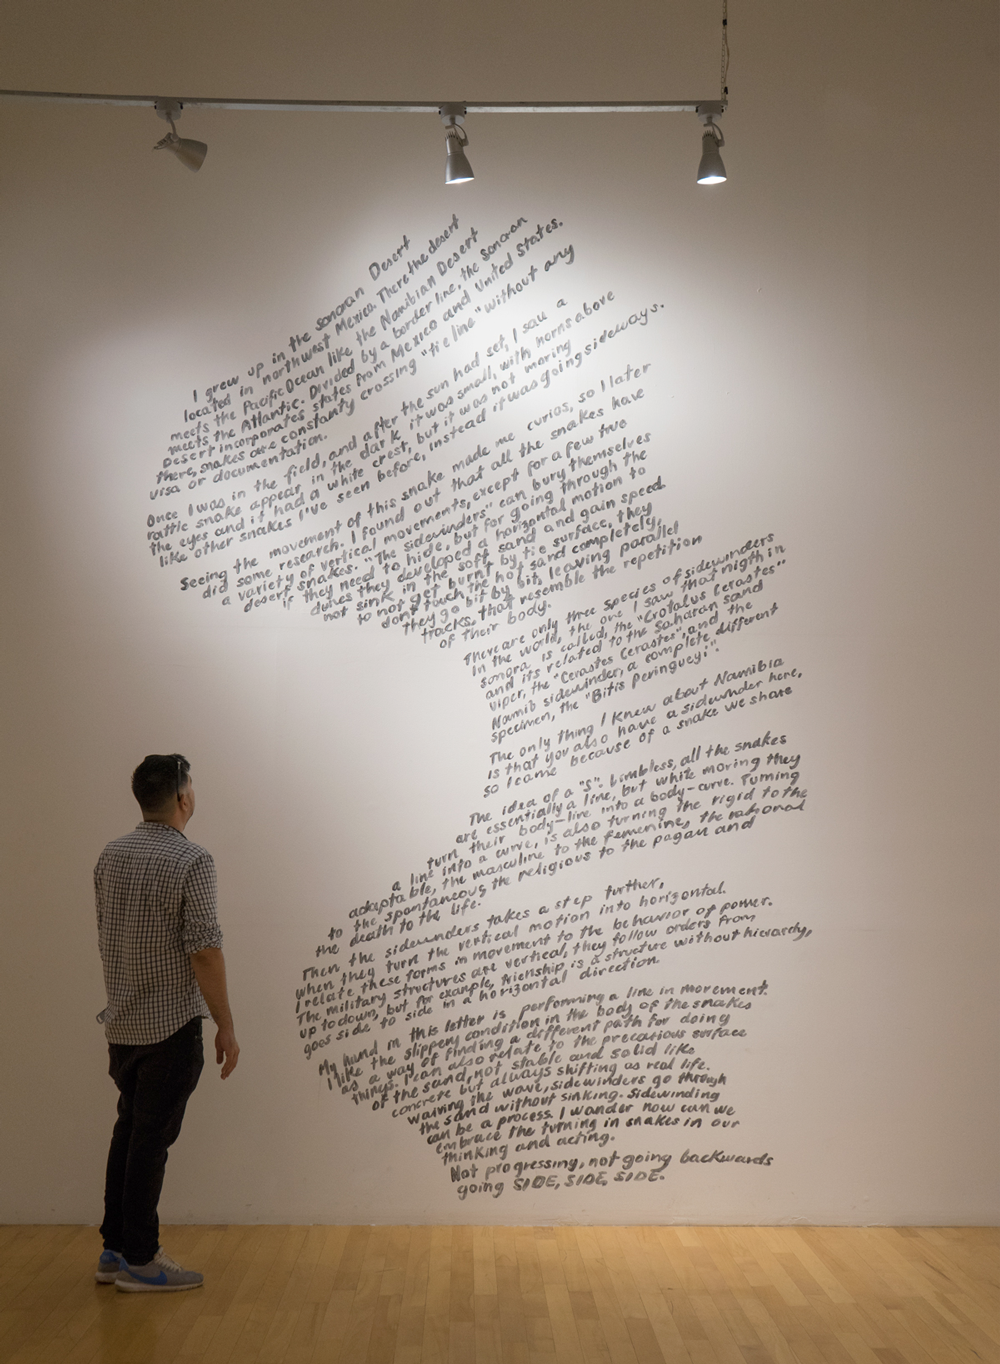 I grew up in the Sonoran Desert
located in northwest Mexico. There the desert
meets the Pacific Ocean like the Namibian Desert
meets the Atlantic. Divided by a border line, the Sonoran
Desert incorporates states from Mexico and United States.
there, snakes are constanty crossing "tie line" without any
visa or documentation.
Once I was in the field, and after the sun had set, I saw a
rattle snake appear in the dark it was small, with horns above
the eyes and it had a white crest, but it was not moring
like other snakes I've seen before, instead it was going sideways.
Seeing the movement of this snake made me curios, so I later
did some research. I found out that all the snakes have
a variety of vertical movements, except for a few true
desert snakes. "The sidewinders" can bury themselves
if they need to hide, but for going through the
dunes they developed a horizontal motion to
not sink in the soft sand and gain speed.
to not get burnt by tie surface, they
dont touch the hot sand completely,
they go bit by bit, leaving parallel
tracks, that resemble the repetition
of their body.
There are only three species of sidewinders
in the world, the one I saw that nigth in
Sonora is called, the "Crotalus Cerastes"
and its related to the Saharan Sand
viper, the "Cerastes Cerastes", and the
Namib sidewinder, a complete different
specimen, the "Bitis peringueyi".
The only thing I knew about Namibia
is that you also have a sidewinder here,
so I came because of a snake we share
The idea of a "S": Limbless, all the snakes
are essentially a line, but while moring they
turn their body-line into a body-curve. Turning
a line into a curve, is also turning the rigid to the
adaptable, the masculine to the feminine, the rational
to the spontaneous the religious to the pagan and
the death to the life.
Then the sidewinders takes a step further,
when they turn the vertical motion into horizontal.
I relate these forms in movement to the behavior of power.
The military structures are vertical, they follow orders from
up to down, but for example, frienship is a structure without hierachy,
goes side to side in a horizontal direction.
My hand in this letter is performing a line in movement.
I like the slippery condition in the body of the snakes
as a way of finding a different path for doing
things. I can also relate to the precarious surface
of the sand, not stable and solid like
concrete but always shifting as real life.
waiving the wave, sidewinders go through
the sand without sinking. Sidewinding
can be a process. I wander now can we
embrace the turning in snakes in our
thinking and acting.
Not progressing, not going backwards
going SIDE, SIDE, SIDE.